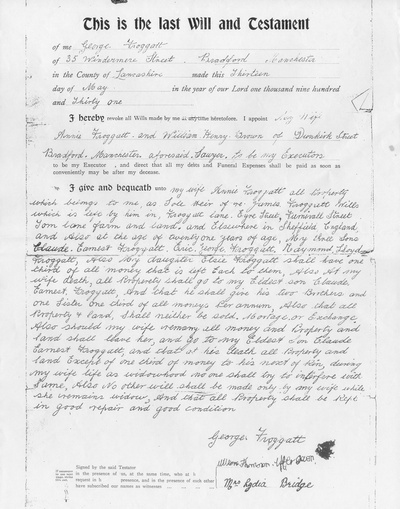 This is the last Will and Testament
of me George Froggatt
of 35 Windermere Street, Bradford, Manchester
in the County of Lancashire made this Thirteen
day of May in the year of our Lord one thousand nine hundred
and Thirty one
I hereby revoke all Wills made by me at any time heretofore. I appoint My Wife
Annie Froggatt and William Henry Brown of Dunkirk Street
Bradford, Manchester, aforesaid, to be my Executors
to be my Executor, and direct that all my debts and Funeral Expenses shall be paid as soon as
conveniently may be after my decease.
I give and bequeath unto my wife Annie Froggatt all Property
which belongs to me, as Sole Heir of James Froggatt
which is left by him in, Froggatt Lane. Eyre Street, Furnivall Street
Tom Lane farm and land, and Elsewhere in Sheffield England
and Also at the age of twenty one years of age, My three Sons
Claude. Earnest Froggatt, Eric, Froggatt, Raymond, Lloyd
Froggatt, Also My daughter Elsie Froggatt shall have one
third of all money that is left Each to them, Also At my
wife Death, all Property shall go to my Eldest son Claude,
Earnest Froggatt, And that he shall give his two Brothers and
one Sister one third of all moneys Per annum, Also that all
Property & land, Shall neither be sold, Mortage, or Exchange
Also should my wife remarry all money and Property and
land shall leave her, and go to my Eldest Son Claude
Earnest Froggatt, and that at his Death all Property and
land Except of one third of money to his next of Kin, during
my wife life as widowhood no one shall try to interfere with
Same, Also No other will shall be made only by my wife while
she remains widow, And that all Property shall be Kept
in good repair and good condition
George. Froggatt
Signed by the said Testator
in the presence of us, at the same time, who at h
request in h presence, and in the presence of each other
have subscribed our names as witnesses
Mrs Lydia Bridge